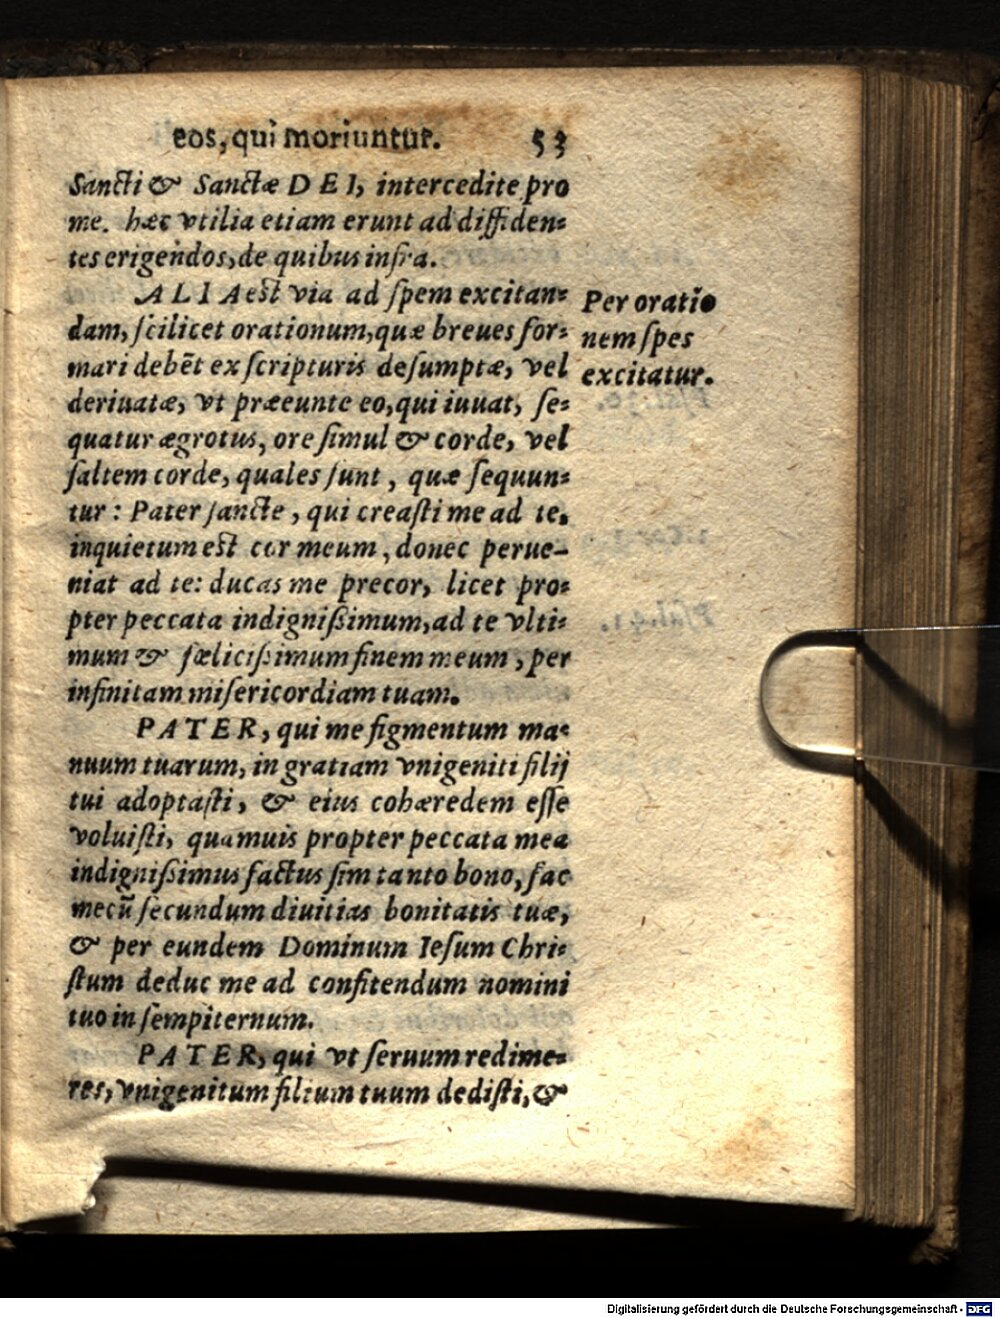 eos, qui moriuntur. 53
Sancti & Sanctæ DEI, intercedite pro
me. hæc vtilia etiam erunt ad diffiden-
tes erigendos, de quibus infra.
ALIA est via ad spem excitan-
dam, scilicet orationum, quæ breues for-
mari debēt ex scripturis desumptæ, vel
deriuatæ, vt præeunte eo, qui iuuat, se-
quatur ægrotus, ore simul & corde, vel
saltem corde, quales sunt, quæ sequun-
tur: Pater sancte, qui creasti me ad te,
inquietum est cor meum, donec perue-
niat ad te: ducas me precor, licet pro-
pter peccata indignißimum, ad te vlti-
mum & fœlicißimum finem meum, per
infinitam misericordiam tuam.
PATER, qui me figmentum ma-
nuum tuarum, in gratiam vnigeniti filij
tui adoptasti, & eius cohæredem esse
voluisti, quamuis propter peccata mea
indignißimus factus sim tanto bono, fac
mecū secundum diuitias bonitatis tuæ,
& per eundem Dominum Iesum Chri-
stum deduc me ad confitendum nomini
tuo in sempiternum.
PATER, qui vt seruum redime-
res, vnigenitum filium tuum dedisti, &
Per oratio
nem spes
excitatur.
Digitalisierung gefördert durch die Deutsche Forschungsgemeinschaft - DFG